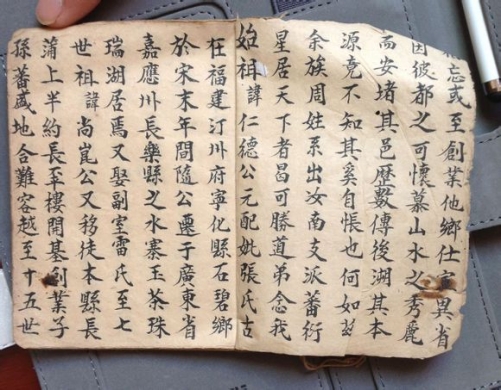 忘或至創業他鄉仕宦異省
因彼都之可懷慕山水之秀麗
而安堵其邑歷數傳後溯其本
源竟不知其奚自悵也何如
余族周姓系出汝南支派蕃衍
星居天下者曷可勝道弟念我
始祖諱仁德公元配妣張氏古
在福建汀州府寧化縣石碧鄉
於宋末年間隨公遷于廣東省
嘉應州長樂縣之水寨玉茶珠
瑞湖居焉又娶副室雷氏至七
世祖諱尚崑公又移徙本縣長
蒲上半約長平樓開基創業子
孫蕃盛地合難容越至十五世